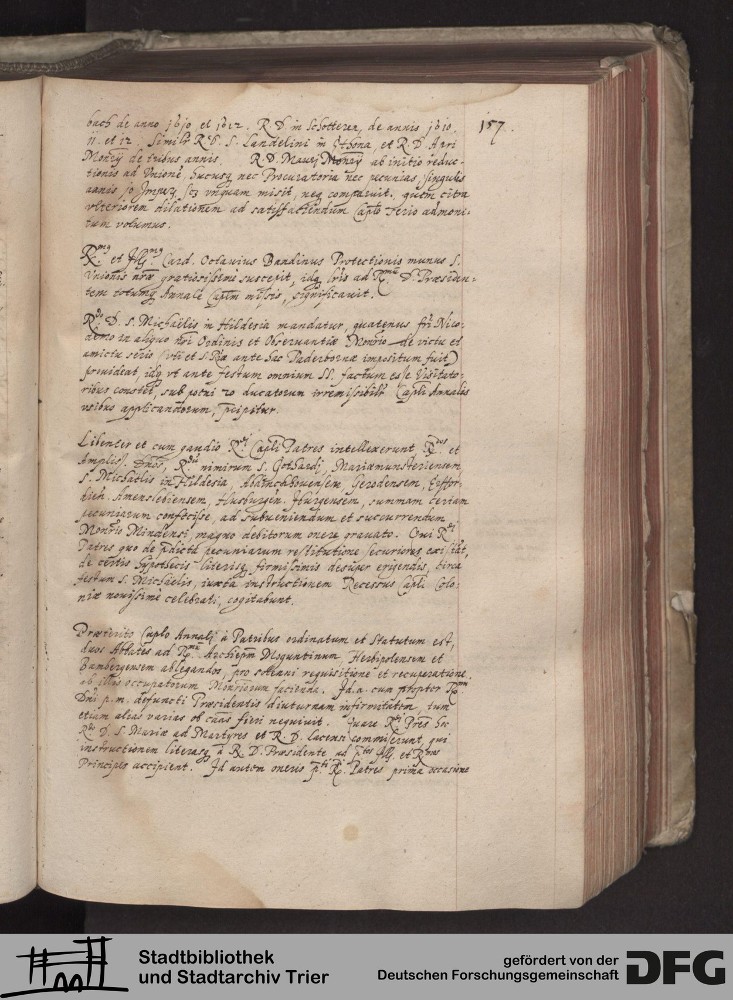 bach de anno 1610 et 1612. R. D. in Schotteren, de annis 1610.
11. et 12. Simil'r R. D. S. Landelini in Ethona, et R. D. Apri
Mon'rij de tribus annis. R. D. Maurj Mon'rij ab initio reduc-
tionis ad Unione', hucusq; nec Procuratoria nec pecunias, singulis
annis unquam misit, neq; comparuit, quem citra
ulteriorem dilationem ad satisfactiendum Cap'lo serio admoni-
tum volumus.
157.
R.mg et Ill.mg Card. Octavius Bandinus Protectionis munus S.
Unionis n'ræ gratiosissime suscepit, idq; l'ris ad R.mu D. Præsiden-
tem totumq; Annale Cap'lm missis, significavit.
R.do D. S. Michaëlis in Hildesia mandatur, quatenus fr'i Nico-
demo in aliquo n'ri Ordinis et Observantiæ Mon'rio de victu et
amictu serio (uti et S. R'æ ante hac Paderbornæ impositum fuit)
provideat, idq; ut ante festum omnium SS. factum esse Visitato-
ribus constet, sub poena 20 ducatorum irremissibil'r Cap'li Annalis
usibus applicandorum, p'cipitur.
Libenter et cum gaudio R.di Cap'li Patres intellexerunt, R.dos et
Ampliss. D'nos, R.du nimirum S. Gothardi, Mariæmunsteriensem
S. Michaëlis in Hildesia, Abdinchovensem Gerodensem,
Ameurslebiensem, Huisburgen. Iburgensem, summam certam
pecuniarum confecisse, ad subveniendum et succurrendum
Mon'rio Mindensi, magno debitorum onere gravato. Qui R.di
Patres quo de p'dicta pecuniarum restitutione securiores existant,
de certis hypothecis literisq; firmissimis desuper erigendis, circa
festum S. Michaëlis, iuxta instructionem Recessus Cap'li Colo-
niæ novissime celebrati, cogitabunt.
Præterito Cap'lo Annali à Patribus ordinatum et statutum est,
duos Abbates ad R.mu Archiep'm Moguntinum, Herbipolensem et
Bambergensem ablegandos, pro solleani requisitione et recuperatione
ab illis occupatorum Mon'riorum facienda. Id. a. cum propter R.mi
D'ni p. m. defuncti Præsidentis diuturnam infirmitatem, tum
etiam alias varias ob caas fieri nequivit. Quare R.di P'res hoc
R.do D. S. Mariæ ad Martyres et R. D. Lacensi commiserunt, qui
instructionem literasq; à R. D. Præsidente ad p'tos Ill. et R.mos
Principes accipient. Id autem oneris p'ti R. Patres prima occasione
Stadtbibliothek
und Stadtarchiv Trier
gefördert von der
Deutschen Forschungsgemeinschaft
DFG